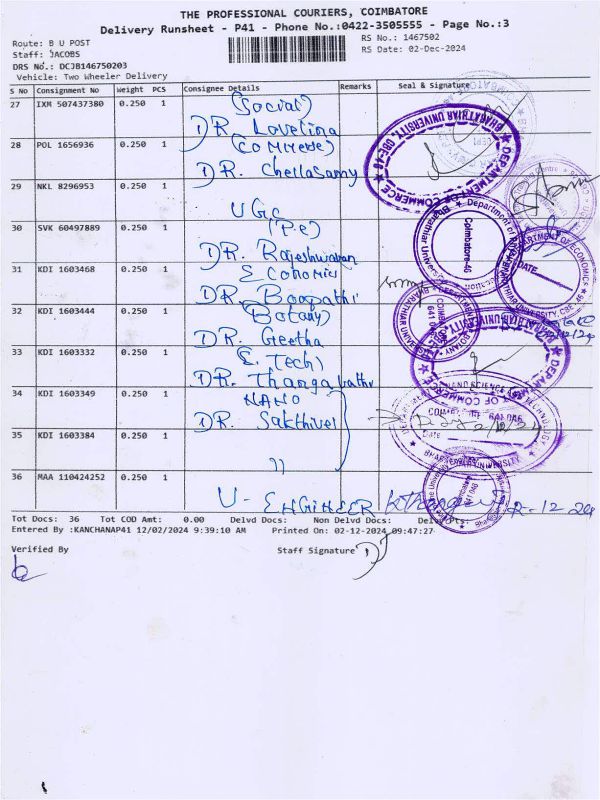 THE PROFESSIONAL COURIERS, COIMBATORE
Delivery Runsheet - P41 - Phone No.:0422-3505555 - Page No.:3
Route: B U POST
RS No.: 1467502
Staff: JACOBS
RS Date: 02-Dec-2024
DRS No.: DCJB146750203
Vehicle: Two Wheeler Delivery
S No Consignment No Weight PCS Consignee Details Remarks Seal & Signature
27 IXM 507437380 0.250 1 (Social)
DR. Lovelina
28 POL 1656936 0.250 1 (Commerce)
DR. Chellasamy
29 NKL 8296953 0.250 1
UGC
30 SVK 60497889 0.250 1 (P.e)
DR. Rajeshwaran
31 KDI 1603468 0.250 1 Economics
DR. Boopathi
32 KDI 1603444 0.250 1 (Botany)
DR. Geetha
33 KDI 1603332 0.250 1 E. Tech)
DR. Thangapathi
34 KDI 1603349 0.250 1 NANO
DR. Sakthivel
35 KDI 1603384 0.250 1
"
36 MAA 110424252 0.250 1
U - ENGINEER 2-12-24
DEPARTMENT OF COMMERCE
BHARATHIAR UNIVERSITY, CBE-46
Coimbatore-46
DEPARTMENT OF ECONOMICS
DATE
BHARATHIAR UNIVERSITY, CBE-46
COIMBATORE 641 046
Date
BHARATHIAR UNIVERSITY
Tot Docs: 36 Tot COD Amt: 0.00 Delvd Docs: Non Delvd Docs: Delvd Pts:
Entered By :KANCHANAP41 12/02/2024 9:39:10 AM Printed On: 02-12-2024 09:47:27
Verified By Staff Signature